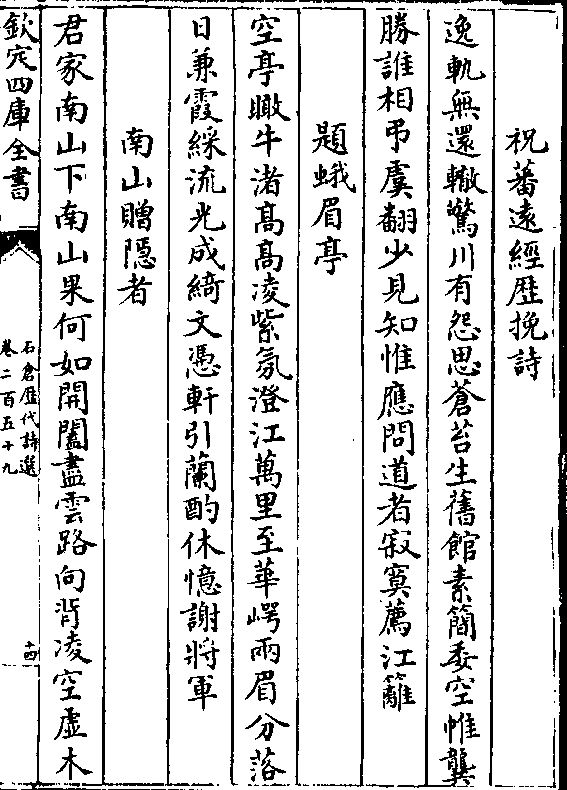 祝蕃遠經歴挽詩
逸軌無還轍驚川有怨思蒼苔生舊館素簡委空帷龔
勝誰相弔虞翻少見知惟應問道者寂寞薦江籬
題蛾眉亭
空亭瞰牛渚髙髙凌紫氛澄江萬里至華㟧兩眉分落
日兼霞綵流光成綺文憑軒引蘭酌休憶謝將軍
南山贈隠者
君家南山下南山果何如開闔盡雲路向背凌空虛木
欽定四庫全書
石倉歴代詩選
卷二百五十九
十四